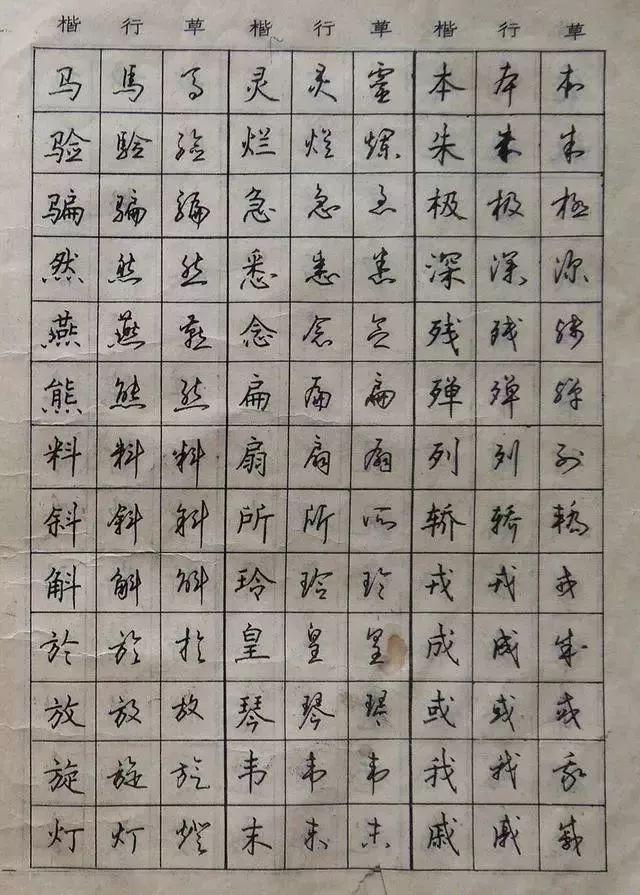 楷 行 草 楷 行 草 楷 行 草
马 馬 马 灵 灵 靈 本 本 本
验 验 验 烂 烂 爛 朱 朱 朱
骗 骗 骗 急 急 急 极 极 極
然 然 然 悉 悉 悉 深 深 深
燕 燕 燕 念 念 念 残 残 残
熊 熊 熊 扁 扁 扁 殚 殚 殚
料 料 料 扇 扇 扇 列 列 列
斜 斜 斜 所 所 所 轿 轿 轎
斛 斛 斛 玲 玲 玲 戎 戎 戎
於 於 於 皇 皇 皇 成 成 成
放 放 放 琴 琴 琴 或 或 或
旋 旋 旋 韦 韦 韦 我 我 我
灯 灯 燈 末 末 末 戚 戚 戚